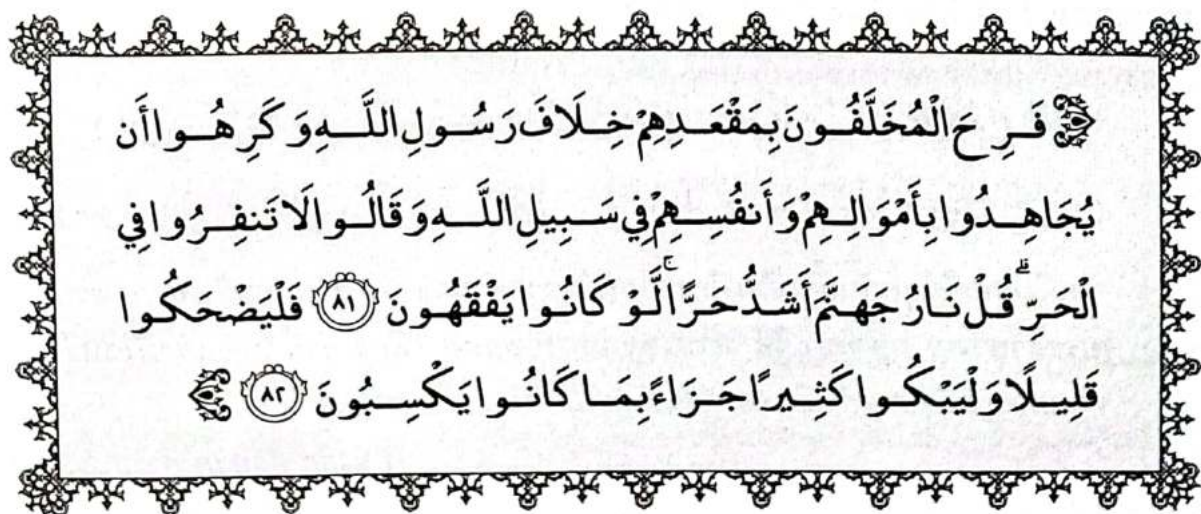 فَرِحَ الْمُخَلَّفُونَ بِمَقْعَدِهِمْ خِلَافَ رَسُولِ اللَّهِ وَكَرِهُوا أَن
يُجَاهِدُوا بِأَمْوَالِهِمْ وَأَنفُسِهِمْ فِي سَبِيلِ اللَّهِ وَقَالُوا لَا تَنفِرُوا فِي
الْحَرِّ ۗ قُلْ نَارُ جَهَنَّمَ أَشَدُّ حَرًّا ۚ لَّوْ كَانُوا يَفْقَهُونَ ﴿٨١﴾ فَلْيَضْحَكُوا
قَلِيلًا وَلْيَبْكُوا كَثِيرًا جَزَاءً بِمَا كَانُوا يَكْسِبُونَ ﴿٨٢﴾